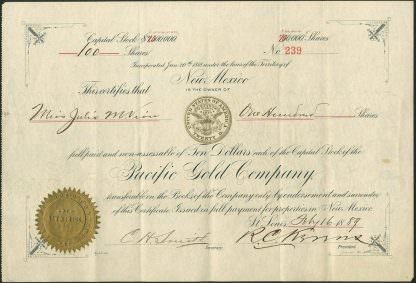 Capital Stock $ 000000
000 Shares
100 Shares
No 239
Incorporated Jan 20th 1881 under the laws of the Territory of
New Mexico
This certifies that
IS THE OWNER OF
Miss Julie
One Hundred Shares
UNITED STATES OF AMERICA
full paid and non-assessable of Ten Dollars each of the Capital Stock of the
Pacific Gold Company,
transferable on the Books of the Company only by endorsement and surrender
of this Certificate. Issued in full payment for properties in New Mexico
St. Louis Feby 16 1889
C H Smith
R. C. Kerens
Secretary
President